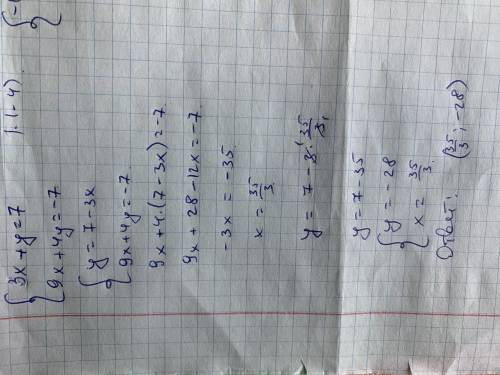 { 3x + y = 7 | · (- 4)
9x + 4y = -7
{ y = 7 - 3x
9x + 4y = -7.
9x + 4 · (7 - 3x) = -7
9x + 28 - 12x = -7.
-3x = -35
x = 35/3
y = 7 - 3 · 35/3
y = 7 - 35
{ y = -28
x = 35/3.
Ответ: (35/3; -28)